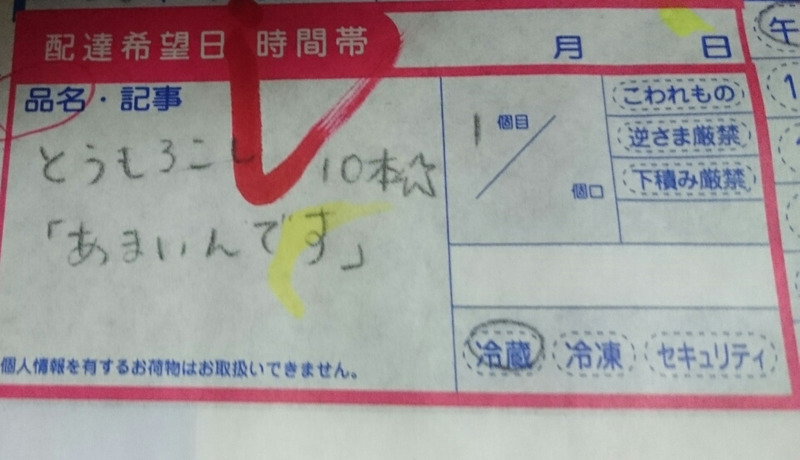 配達希望日・時間帯 月 日 午
品名・記事
とうもろこし 10本☆
「あまいんです」
1 個目
個口
こわれもの
逆さま厳禁
下積み厳禁
冷蔵 冷凍 セキュリティ
個人情報を有するお荷物はお取扱いできません。